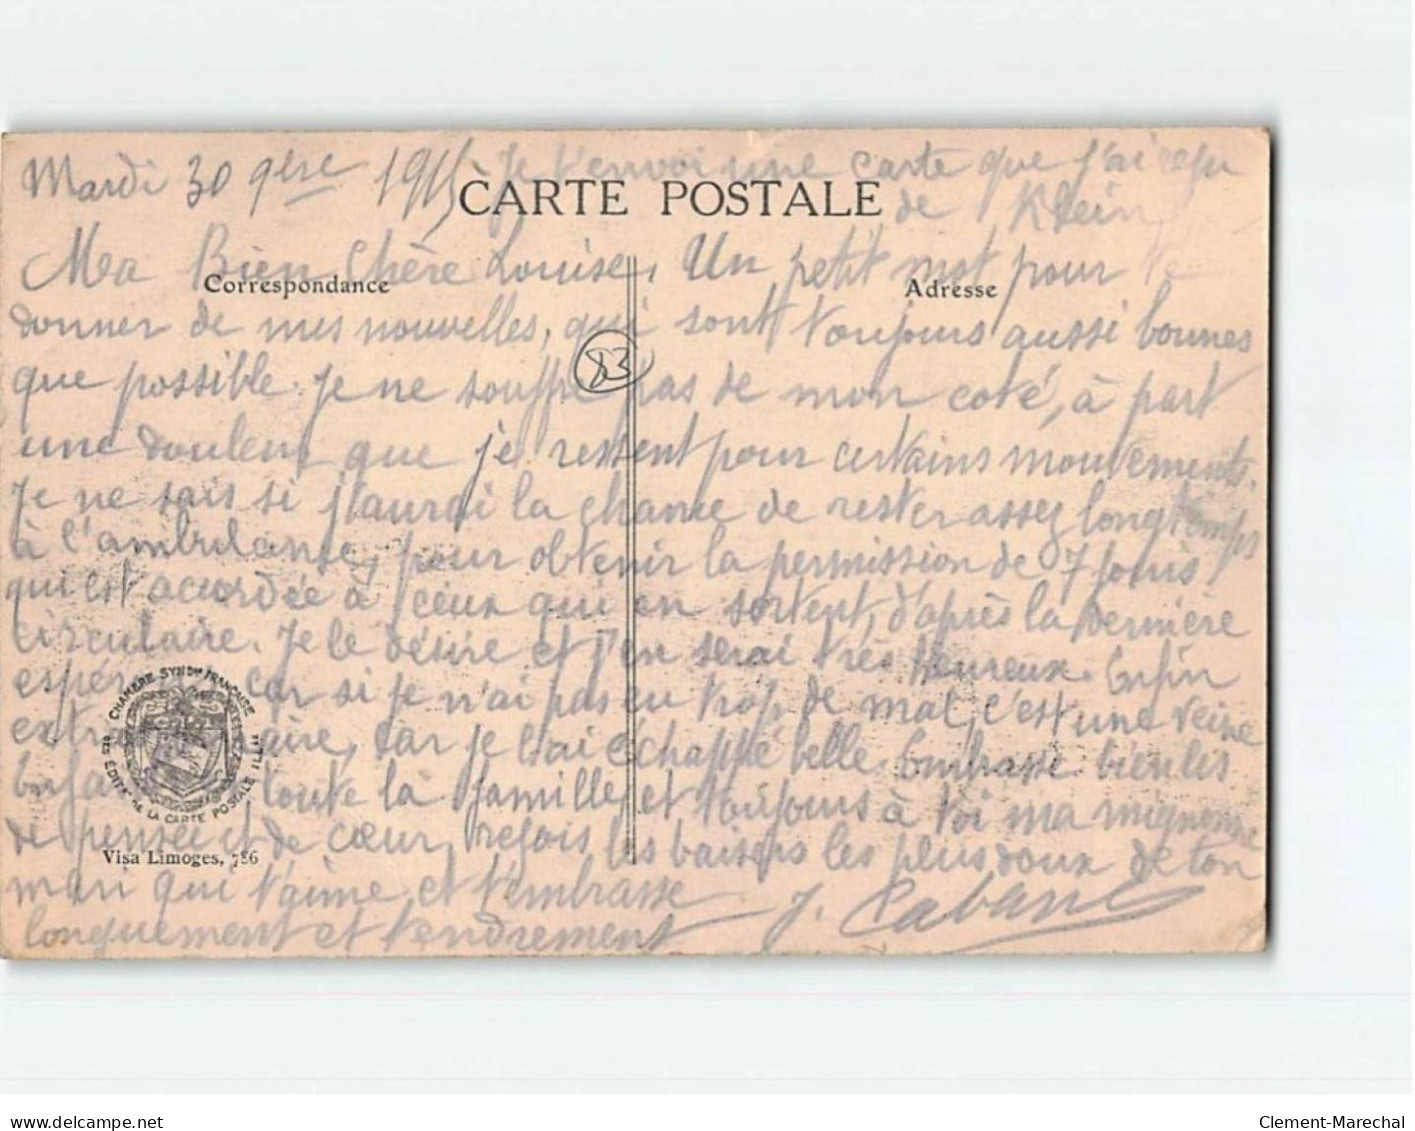 Mardi 30 9bre 1915 Je t'envoi une carte que j'ai reçu
CARTE POSTALE
de Klein
Ma Bien Chère Louise, Un petit mot pour te
Correspondance
Adresse
donner de mes nouvelles, qui sont toujours aussi bonnes
83
que possible. Je ne souffre pas de mon coté, à part
une douleur que je ressent pour certains mouvements.
Je ne sais si j'aurai la chance de rester assez longtemps
à l'ambulance, pour obtenir la permission de 7 jours
qui est accordée à ceux qui en sortent, d'après la dernière
circulaire. Je le désire et j'en serai très heureux. Enfin
car si je n'ai pas eu trop de mal, c'est une veine
car je l'ai échappé belle. Embrasse bien les
toute la famille, et toujours à toi ma mignonne
de pensée et de cœur, reçois les baisers les plus doux de ton
mari qui t'aime et t'embrasse
longuement et tendrement
J. Cabane
CHAMBRE SYNDle FRANÇAISE
DES ÉDITrs DE LA CARTE POSTALE ILLtée
Visa Limoges, 786
delcampe.net
Clement-Marechal